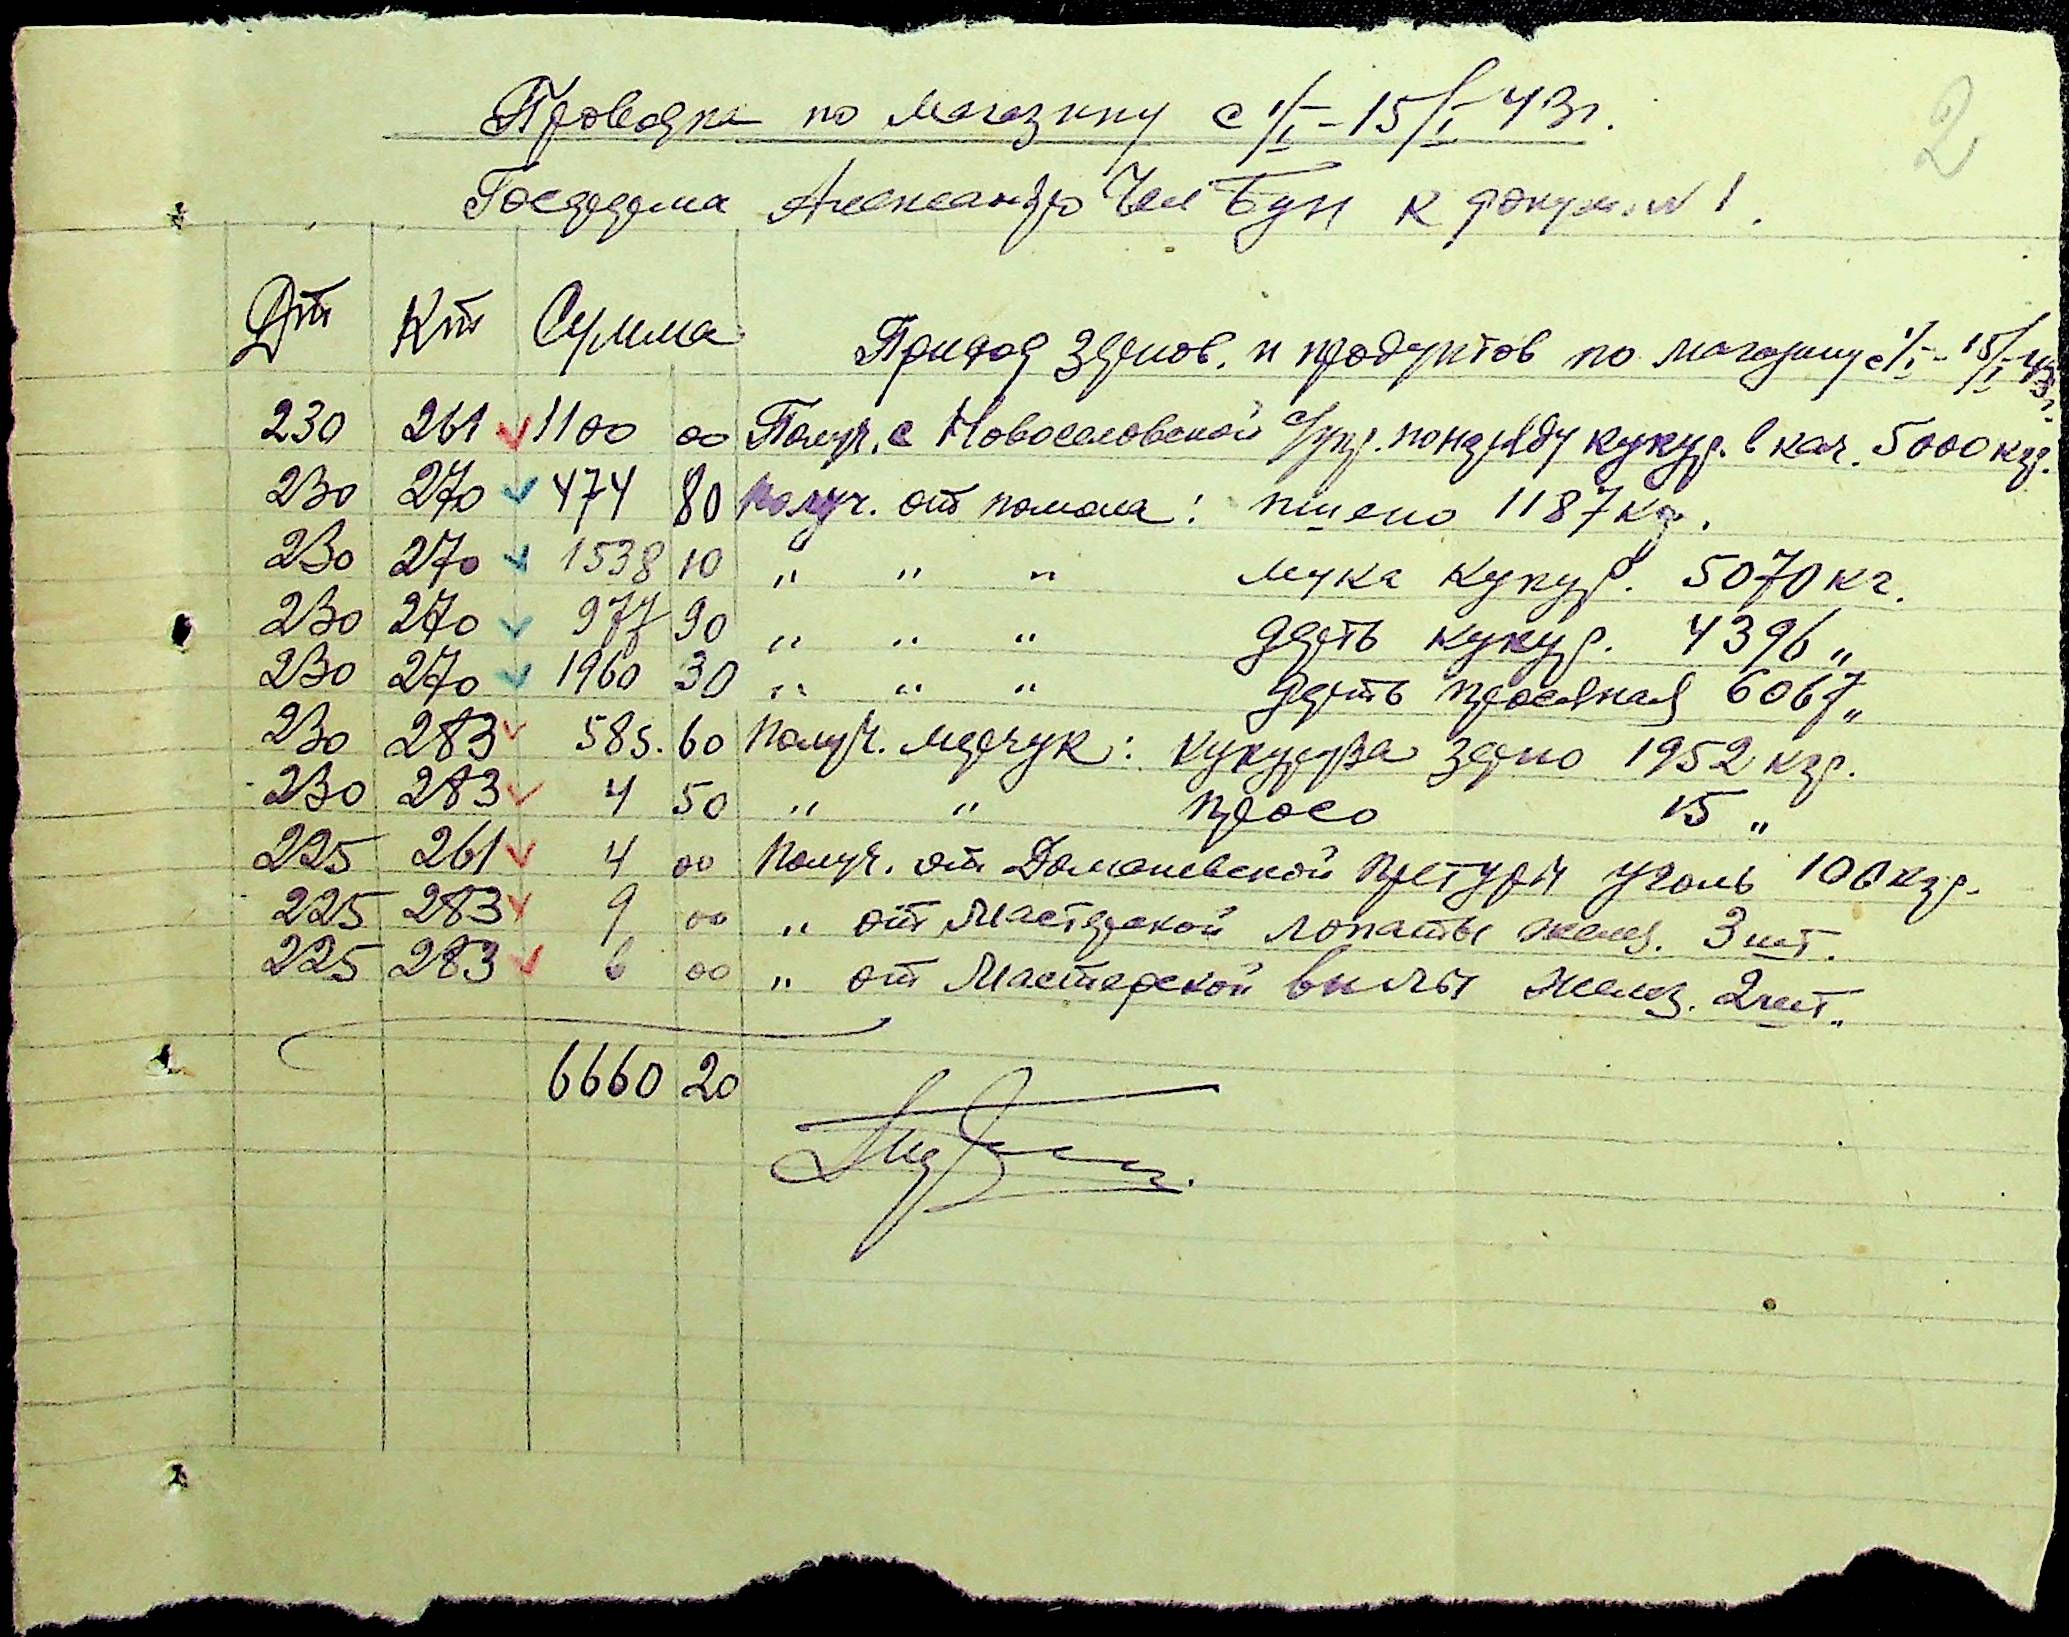 2
Проводка по магазину с 1/I - 15/I 43г.
Госферма Александро Чел Бун к докум. N 1.
Дт Кт Сумма Приход зернов. и продуктов по магазину с 1/I - 15/I - 43г.
230 261 1100 00 Получ. с Новоселовской кукур. в кач. 5000 кгр.
230 270 474 80 Получ. от помола: пшено 1187 кг.
230 270 1538 10 " " " мука кукур. 5070 кг.
230 270 977 90 " " " дерть кукур. 4396 "
230 270 1960 30 " " " дерть просяная 6067 "
230 283 585. 60 Получ. мерчук: кукуруза зерно 1952 кгр.
230 283 4 50 " " просо 15 "
225 261 4 00 Получ. от Доманевской претуры уголь 100 кгр.
225 283 9 00 " от Мастерской лопаты желез. 3 шт.
225 283 6 00 " от Мастерской вилы желез. 2 шт.
6660 20